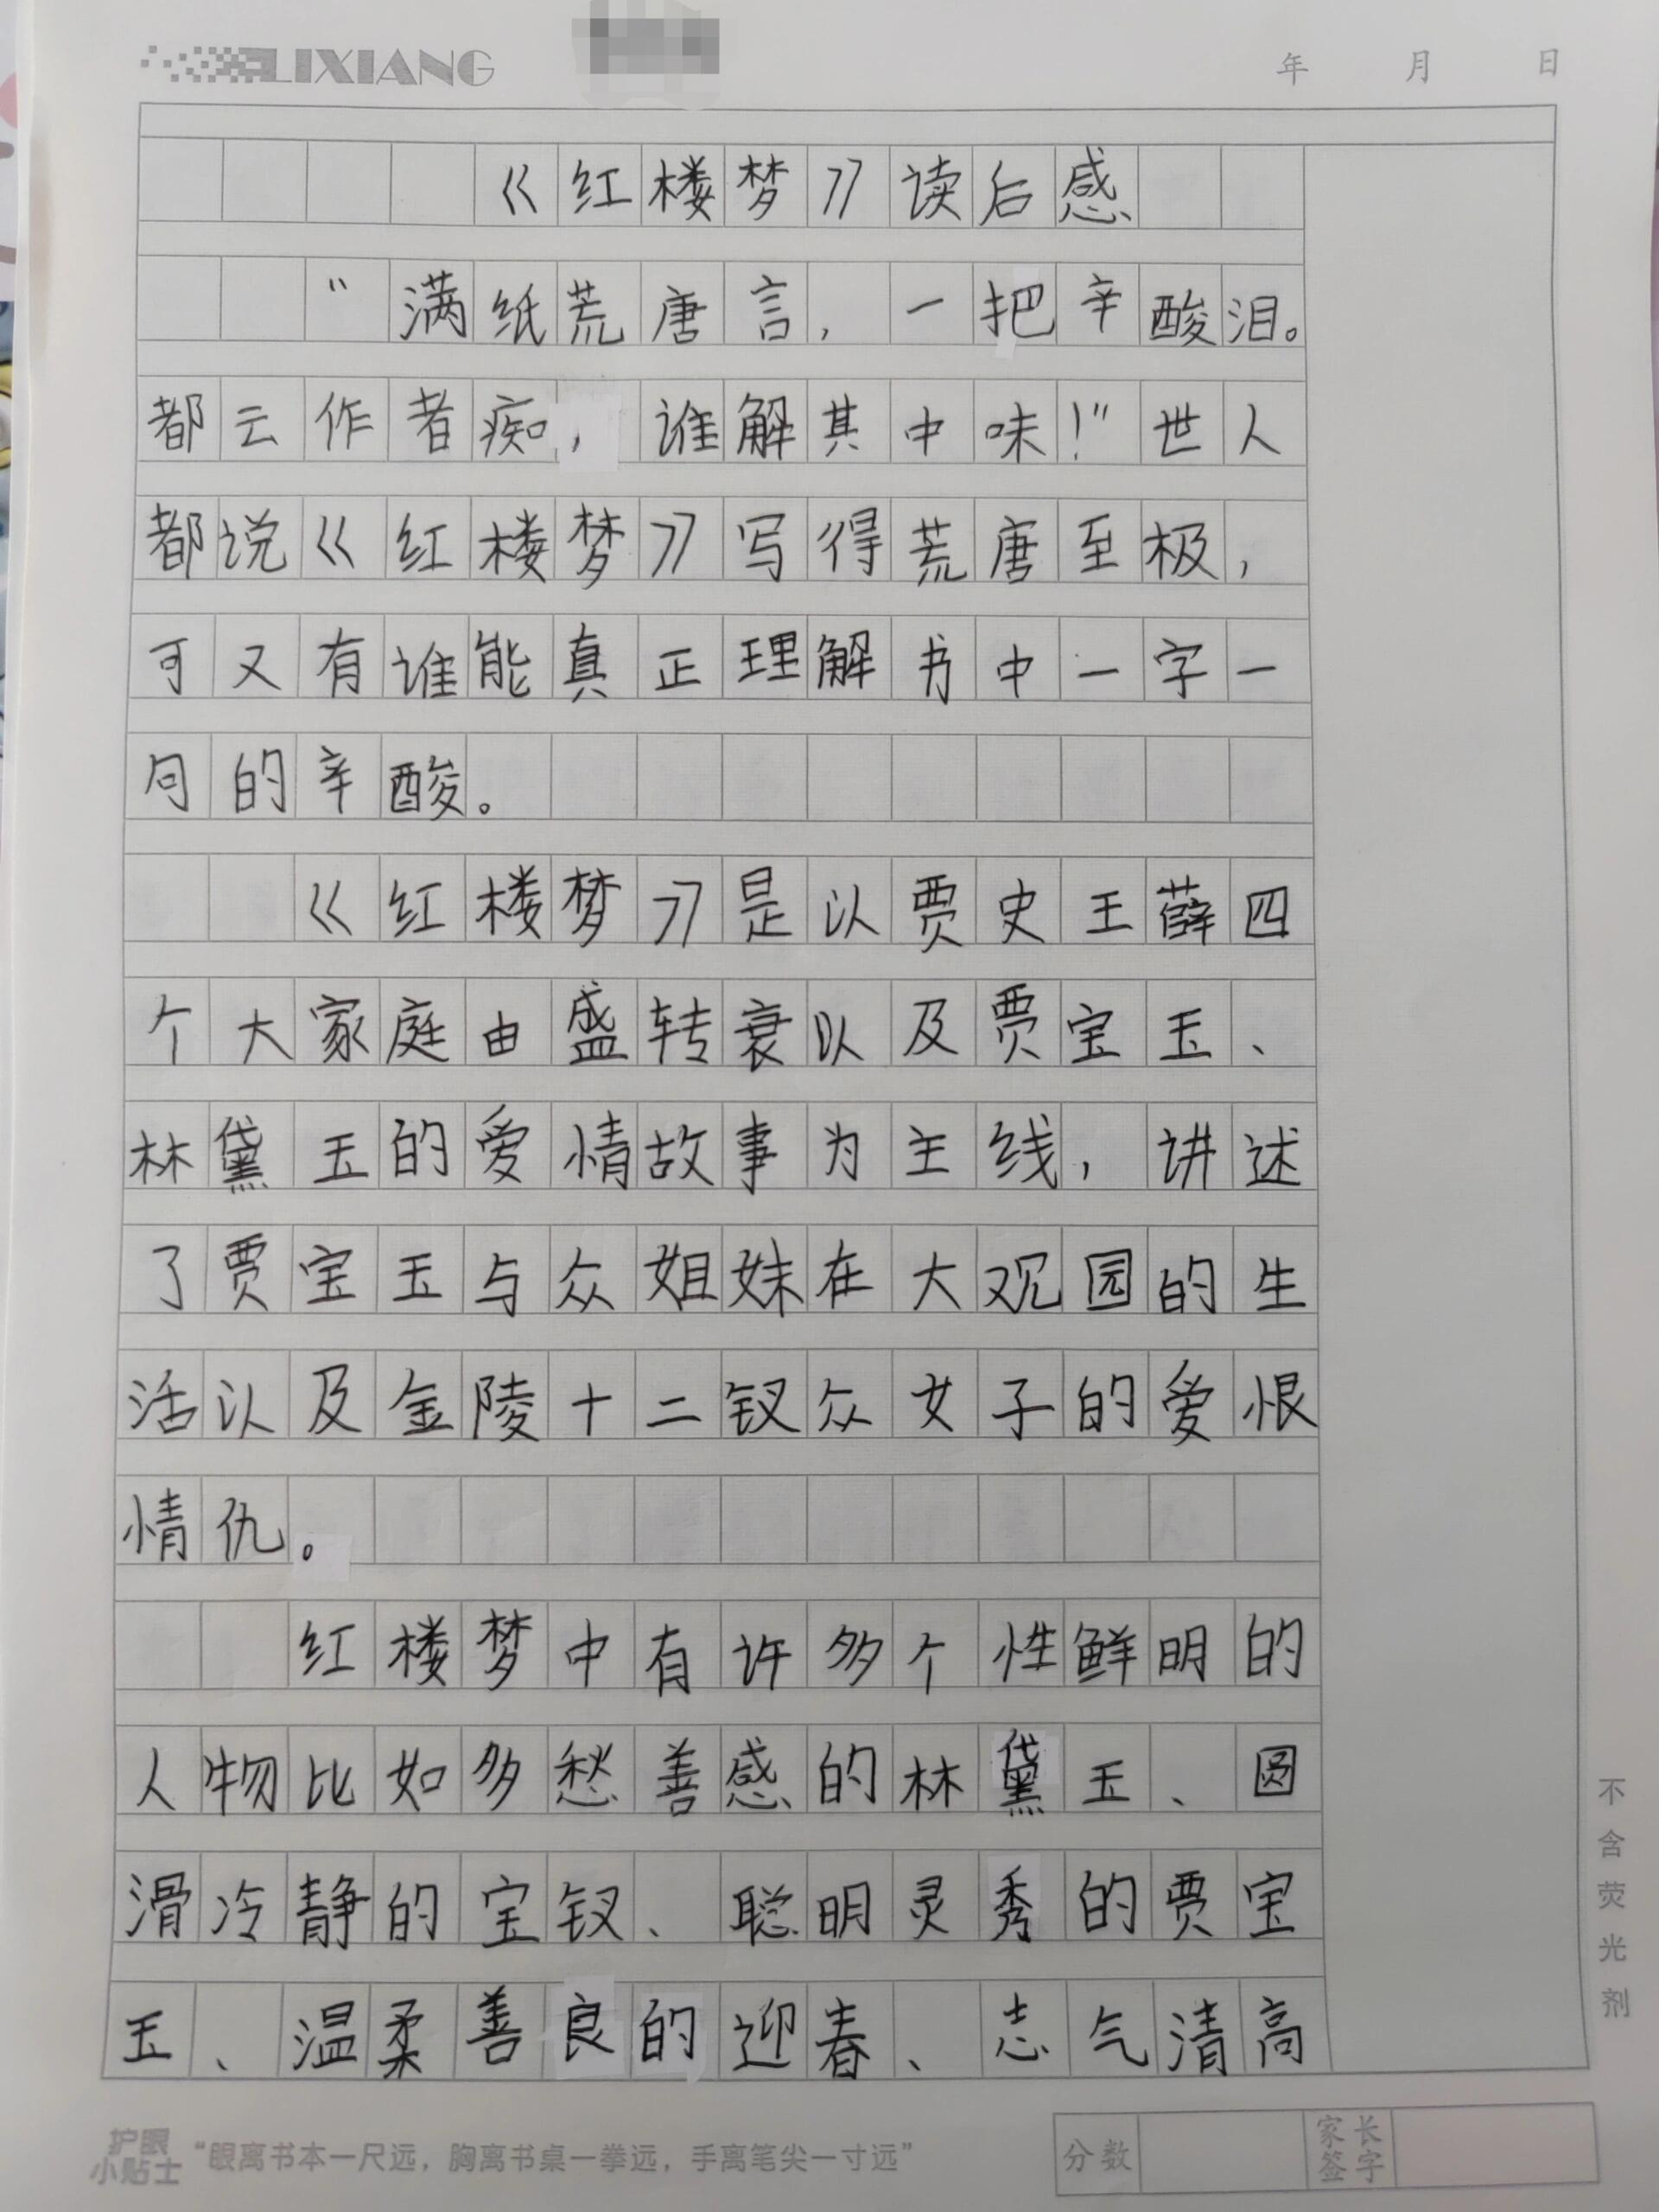 LIXIANG
年 月 日
《红楼梦》读后感
“满纸荒唐言，一把辛酸泪。
都云作者痴，谁解其中味！”世人
都说《红楼梦》写得荒唐至极，
可又有谁能真正理解书中一字一
句的辛酸。
《红楼梦》是以贾史王薛四
个大家庭由盛转衰以及贾宝玉、
林黛玉的爱情故事为主线，讲述
了贾宝玉与众姐妹在大观园的生
活以及金陵十二钗众女子的爱恨
情仇。
红楼梦中有许多个性鲜明的
人物比如多愁善感的林黛玉、圆
滑冷静的宝钗、聪明灵秀的贾宝
玉、温柔善良的迎春、志气清高
不含荧光剂
护眼
小贴士
“眼离书本一尺远，胸离书桌一拳远，手离笔尖一寸远”
分数
家长
签字